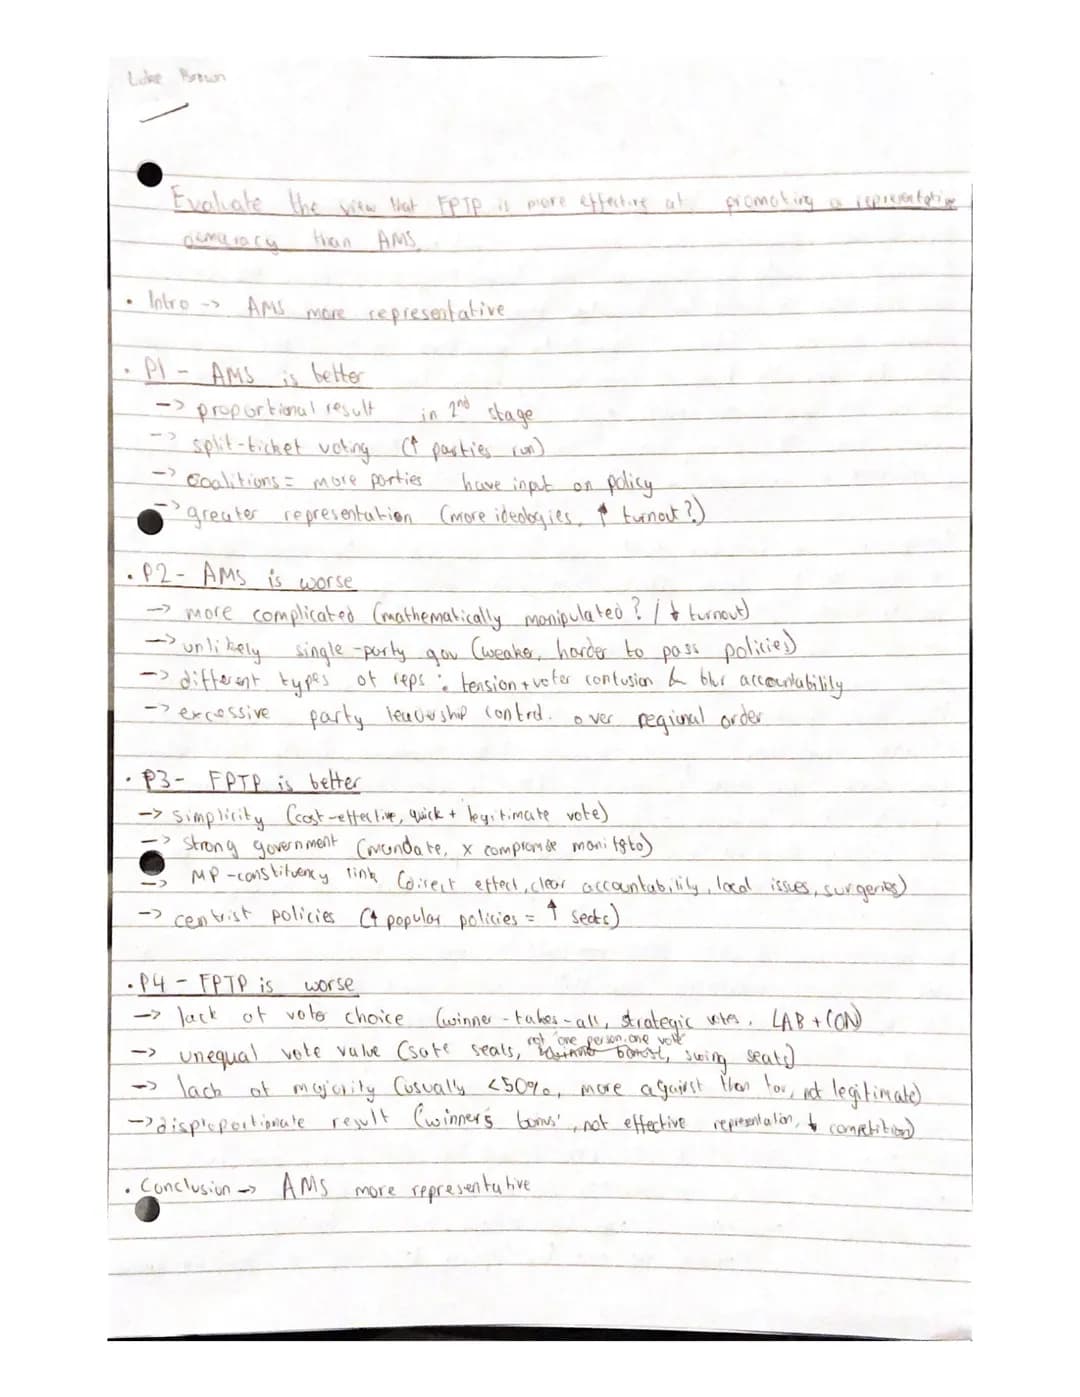 Luke Brown
Evaluate the view that FPTP is more effective at promoting a representative
democracy than AMS.
• Intro -> AMS more representative
• P1 - AMS is better
-> proportional result in 2nd stage
-> split-ticket voting (↑ parties run)
-> coalitions = more parties have input on policy
-> greater representation (more ideologies, ↑ turnout?)
• P2 - AMS is worse
-> more complicated (mathematically manipulated? / ↓ turnout)
-> unlikely single-party gov (weaker, harder to pass policies)
-> different types of reps ∴ tension + voter confusion & blur accountability
-> excessive party leadership control over regional order
• P3 - FPTP is better
-> simplicity (cost-effective, quick + legitimate vote)
-> strong government (mandate, x compromise manifesto)
-> MP-constituency link (direct effect, clear accountability, local issues, surgeries)
-> centrist policies (↑ popular policies = ↑ seats)
• P4 - FPTP is worse
-> lack of voter choice (winner-takes-all, strategic votes, LAB + CON)
-> unequal vote value (safe seats, not 'one person, one vote', swing seats)
-> lack of majority (usually <50%, more against than for, not legitimate)
-> disproportionate result ('winner's bonus', not effective representation, ↓ competition)
• Conclusion -> AMS more representative